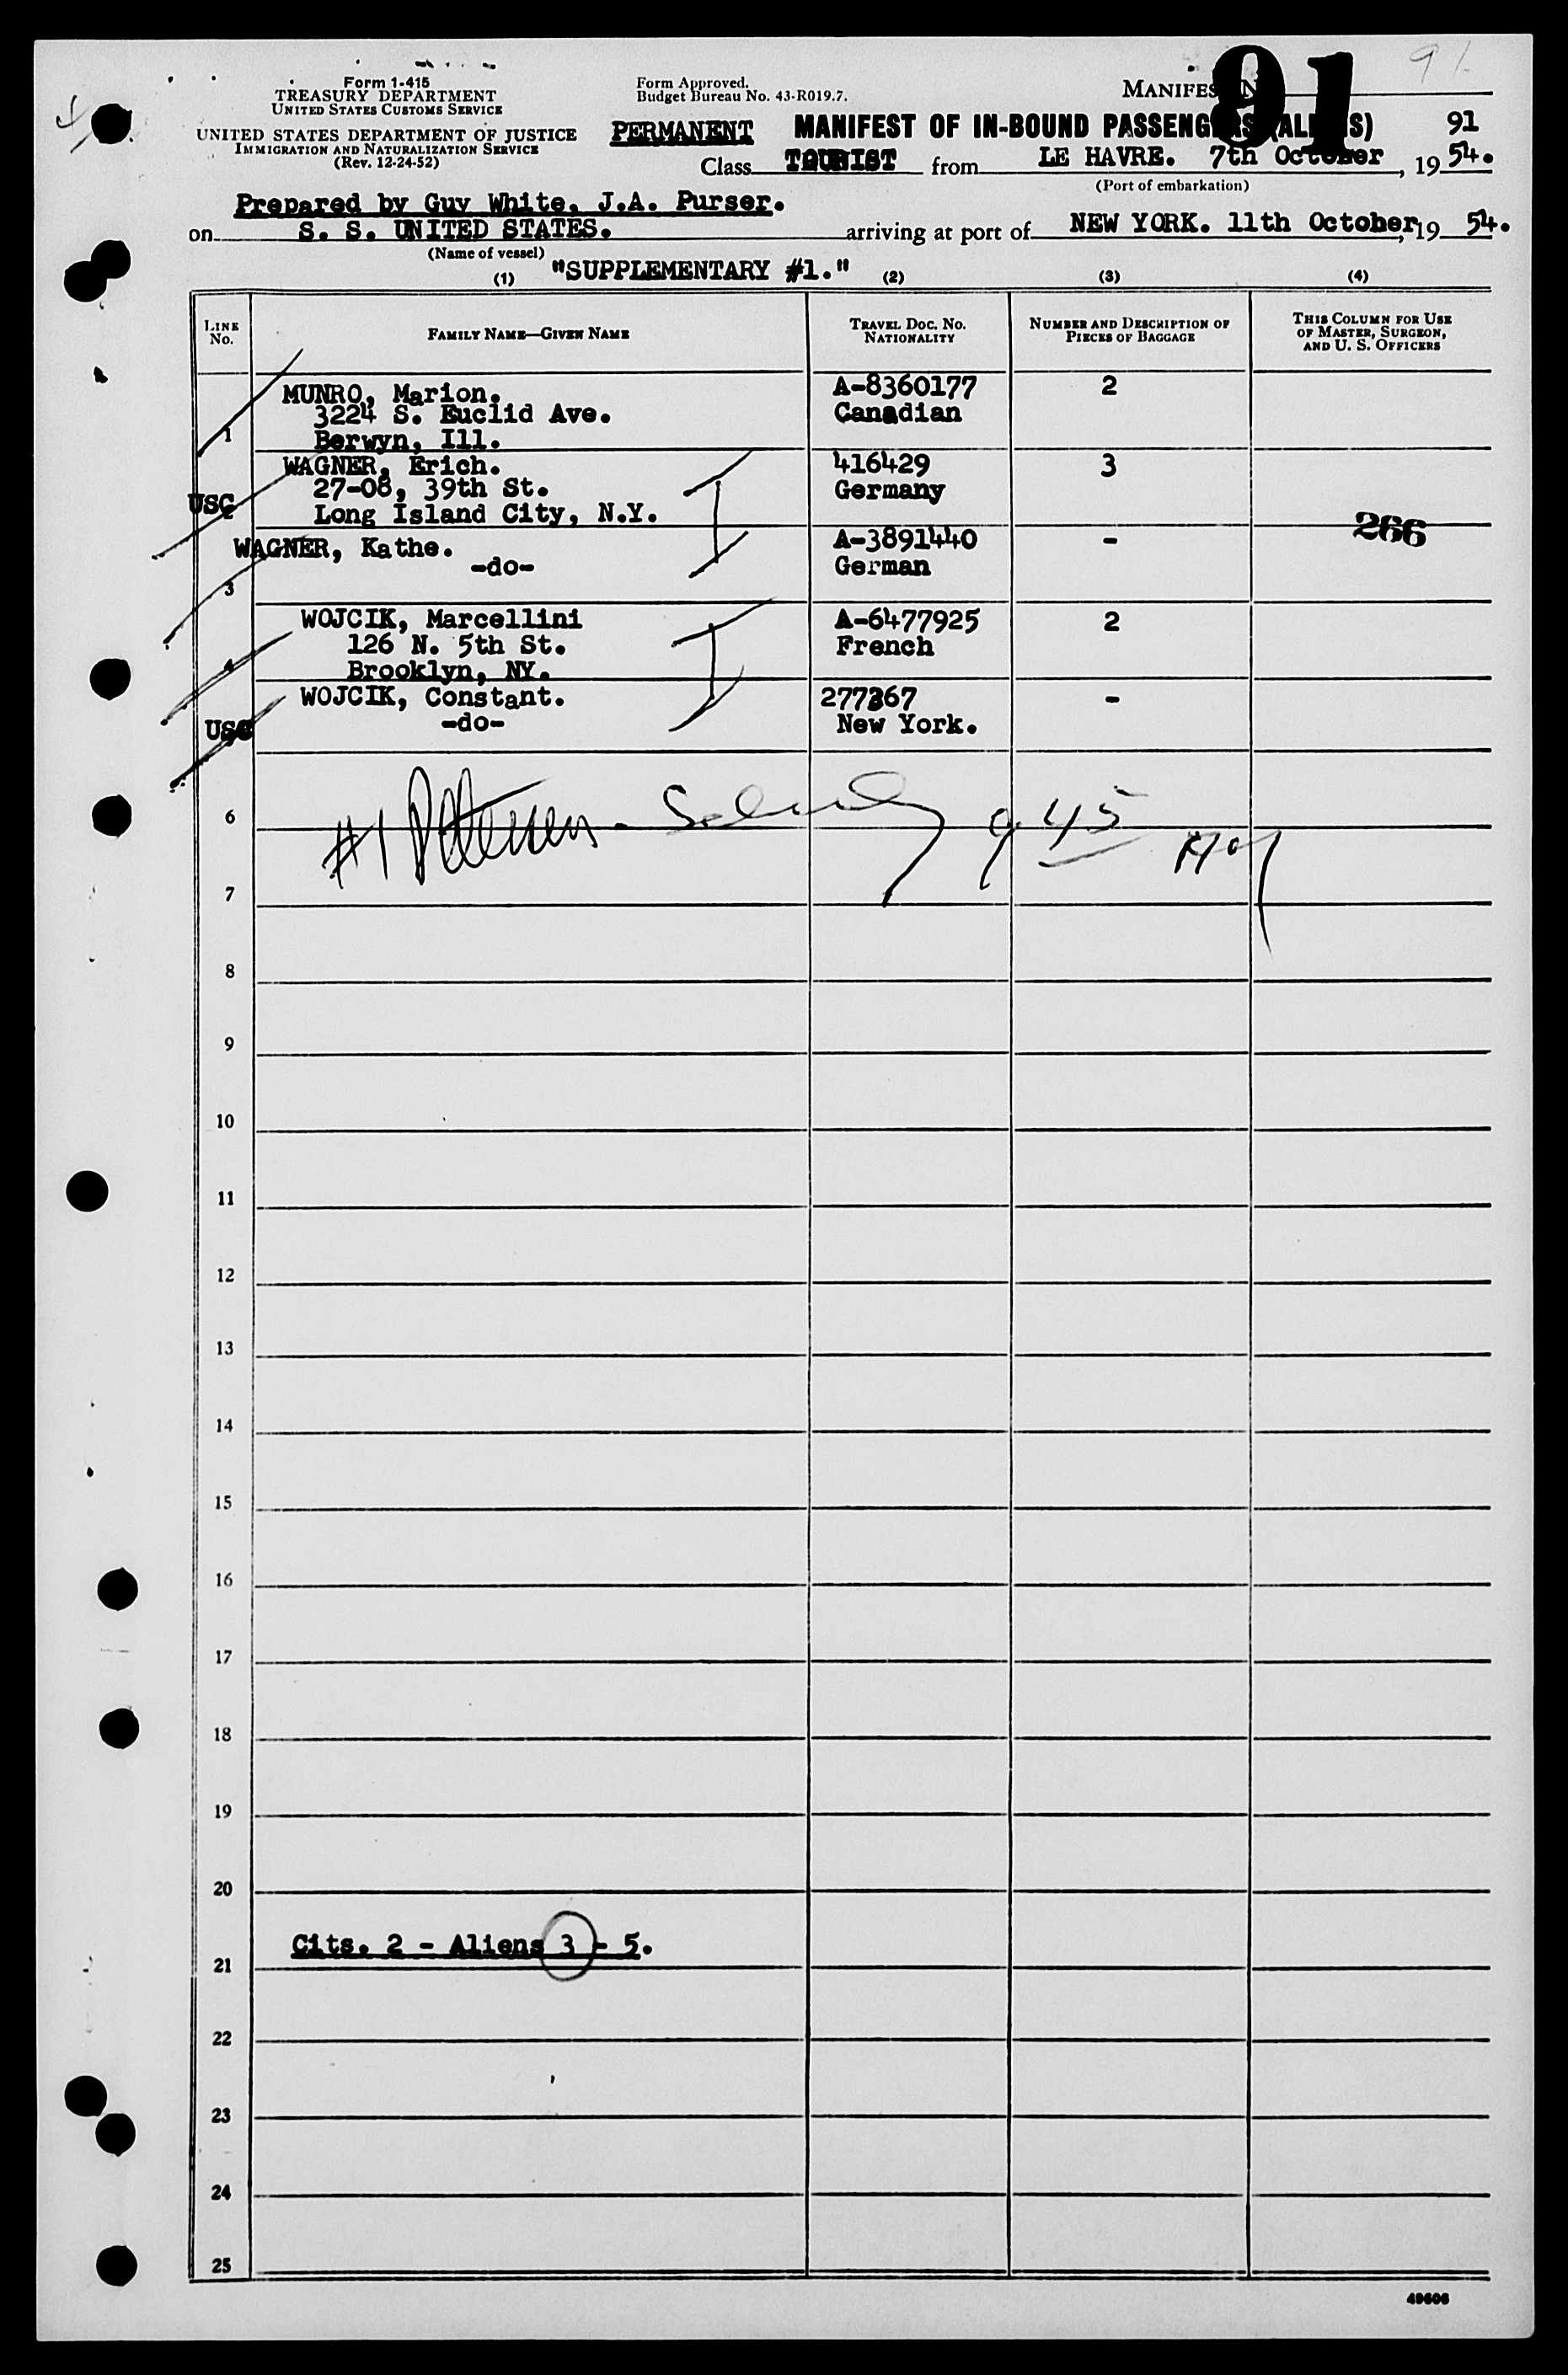 91
Form 1-415
TREASURY DEPARTMENT
UNITED STATES CUSTOMS SERVICE
UNITED STATES DEPARTMENT OF JUSTICE
IMMIGRATION AND NATURALIZATION SERVICE
(Rev. 12-24-52)
Form Approved.
Budget Bureau No. 43-R019.7.
91
PERMANENT MANIFEST OF IN-BOUND PASSENGERS (ALIENS) 91
Class TOURIST from LE HAVRE. 7th October, 1954.
(Port of embarkation)
Prepared by Guy White. J.A. Purser.
on S. S. UNITED STATES. arriving at port of NEW YORK. 11th October, 19 54.
(Name of vessel)
"SUPPLEMENTARY #1."
(1) (2) (3) (4)
LINE No. FAMILY NAME—GIVEN NAME TRAVEL DOC. NO. NATIONALITY NUMBER AND DESCRIPTION OF PIECES OF BAGGAGE THIS COLUMN FOR USE OF MASTER, SURGEON, AND U. S. OFFICERS
MUNRO, Marion. A-8360177 2
3224 S. Euclid Ave. Canadian
1 Berwyn, Ill.
WAGNER, Erich. 416429 3
27-08, 39th St. Germany
USC 2 Long Island City, N.Y.
266
WAGNER, Kathe. A-3891440 -
-do- German
3
WOJCIK, Marcellini A-6477925 2
126 N. 5th St. French
4 Brooklyn, NY.
WOJCIK, Constant. 277367 -
USC -do- New York.
6
#1 945
7
8
9
10
11
12
13
14
15
16
17
18
19
20
Cits. 2 - Aliens 3 - 5.
21
22
23
24
25
49606